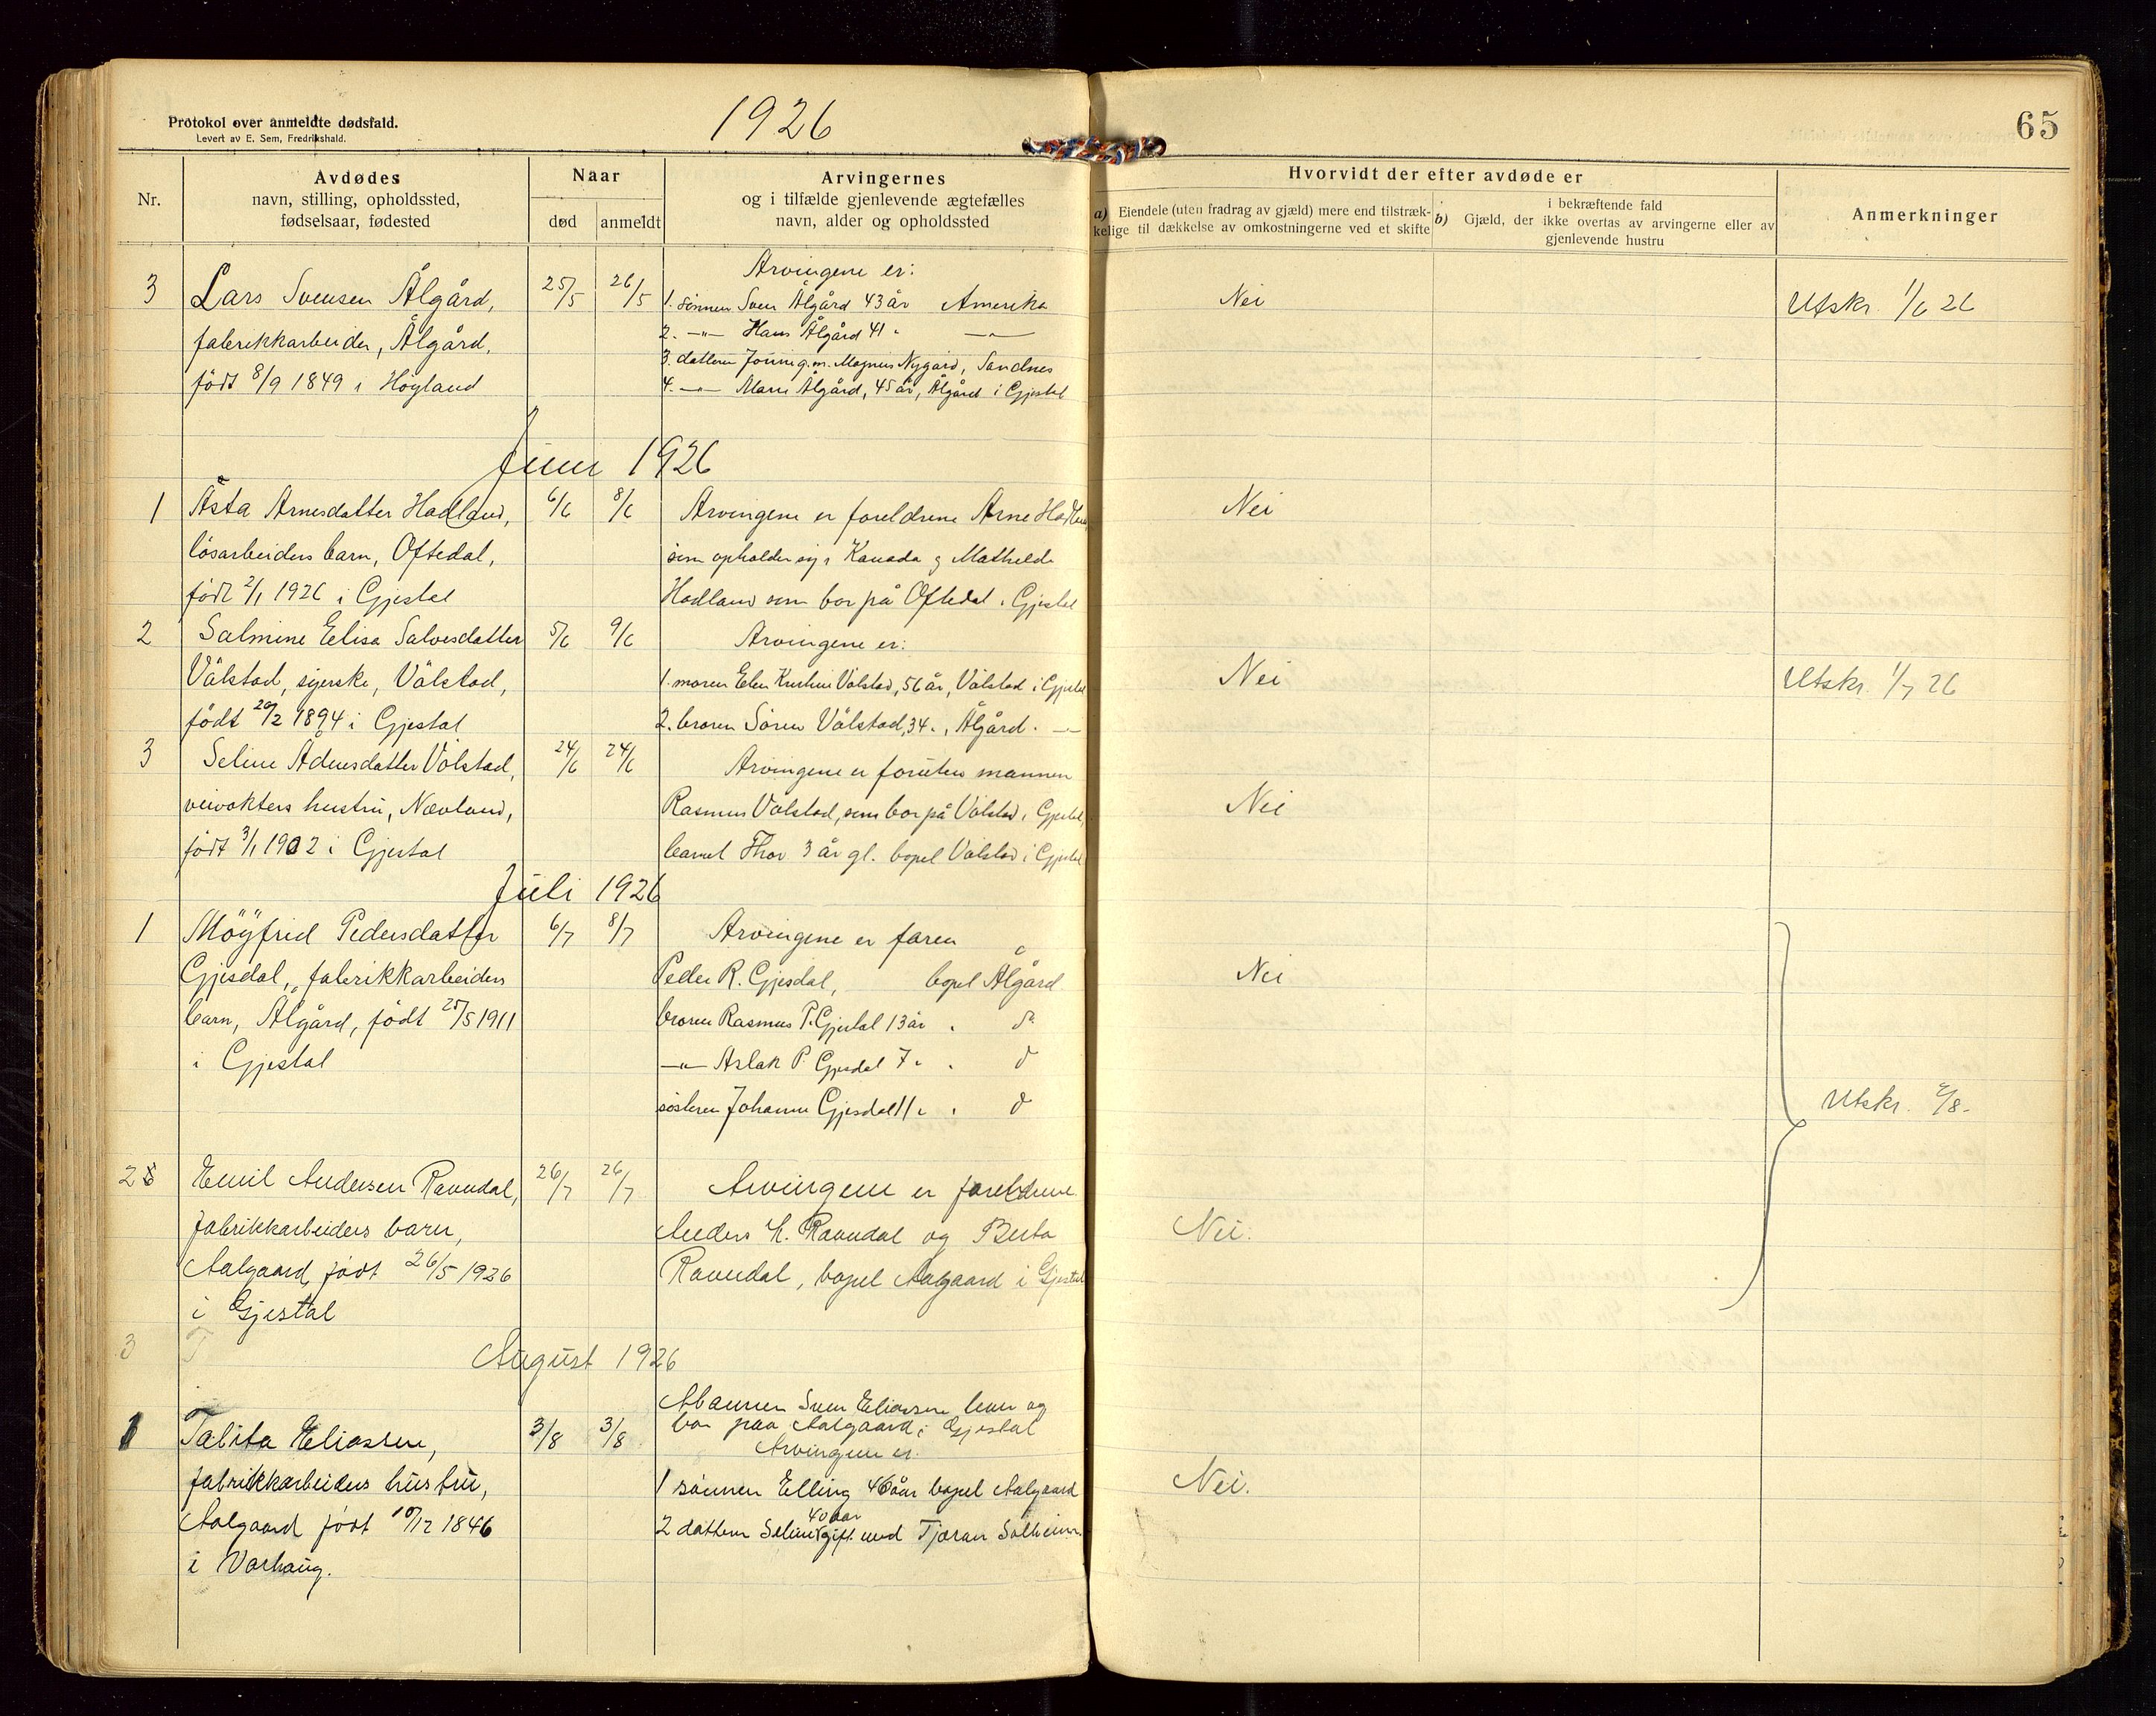 Protokol over anmeldte dødsfald.
Levert av E. Sem, Fredrikshald.
1926
65
Nr.
Avdødes
navn, stilling, opholdssted,
fødselsaar, fødested
Naar
død
anmeldt
Arvingernes
og i tilfælde gjenlevende ægtefælles
navn, alder og opholdssted
Hvorvidt der efter avdøde er
a) Eiendele (uten fradrag av gjæld) mere end tilstræk-
kelige til dækkelse av omkostningerne ved et skifte
i bekræftende fald
b) Gjæld, der ikke overtas av arvingerne eller av
gjenlevende hustru
Anmerkninger
3
Lars Svensen Ålgård,
fabrikkarbeider, Ålgård,
födt 8/9 1849 i Höyland
25/5
26/5
Arvingene er:
1. sönnen Sven Ålgård 43 år Amerika
2. —"— Hans Ålgård 41 " —"—
3. datteren g.m. Magnus Nygård, Sandnes
4. —"— Marie Ålgård, 45 år, Ålgård i Gjestal
Nei
Utskr. 1/6 26
Juni 1926
1
Åsta Arnesdatter Hadland,
lösarbeiders barn, Oftedal,
födt 2/1 1926 i Gjestal
6/6
8/6
Arvingene er foreldrene Arne Hadland
som opholder sig i Kanada og Mathilde
Hadland som bor på Oftedal i Gjestal
Nei
2
Salmine Elisa Salvesdatter
Vålstad, syerske, Vålstad,
födt 20/2 1894 i Gjestal
5/6
9/6
Arvingene er:
1. moren Elen Kristine Vålstad, 56 år, Vålstad i Gjestal
2. broren Sören Vålstad, 34 ", Ålgård " —"—
Nei
Utskr. 1/7 26
3
Seline Ådnesdatter Vålstad,
veivokters hustru, Nævland,
födt 3/1 1902 i Gjestal
24/6
24/6
Arvingene er foruten mannen
Rasmus Vålstad, som bor på Vålstad i Gjestal,
barnet Thor 3 år gl. bopel Vålstad i Gjestal
Nei
Juli 1926
1
Möyfrid Pedersdatter
Gjesdal, fabrikkarbeiders
barn, Ålgård, födt 25/5 1911
i Gjestal
6/7
8/7
Arvingene er faren
Peder R. Gjesdal, bopel Ålgård
broren Rasmus P. Gjesdal 13 år " do
—"— Aslak P. Gjesdal 7 " " do
sösteren Johanne Gjesdal 11 " " do
Nei
Utskr. 2/8.
2
Emil Andersen Ravndal,
fabrikkarbeiders barn,
Aalgaard, födt 26/5 1926
i Gjestal
26/7
26/7
Arvingene er foreldrene
Anders H. Ravndal og Berta
Ravndal, bopel Aalgaard i Gjestal
Nei.
3
T
August 1926
1
Talita Eliassen,
fabrikkarbeiders hustru,
Aalgaard födt 10/12 1846
i Varhaug.
3/8
3/8
Mannen Sven Eliassen lever og
bor paa Aalgaard i Gjestal
Arvingene er:
1 sönnen Elling 46 aar bopel Aalgaard
40 aar
2 datteren Seline gift med Tjæran Solheim
Nei.